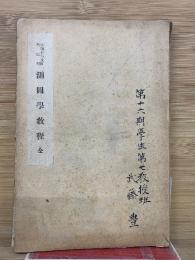 測圖學教程 全
第十六期學生第七教授班
武藤 豊